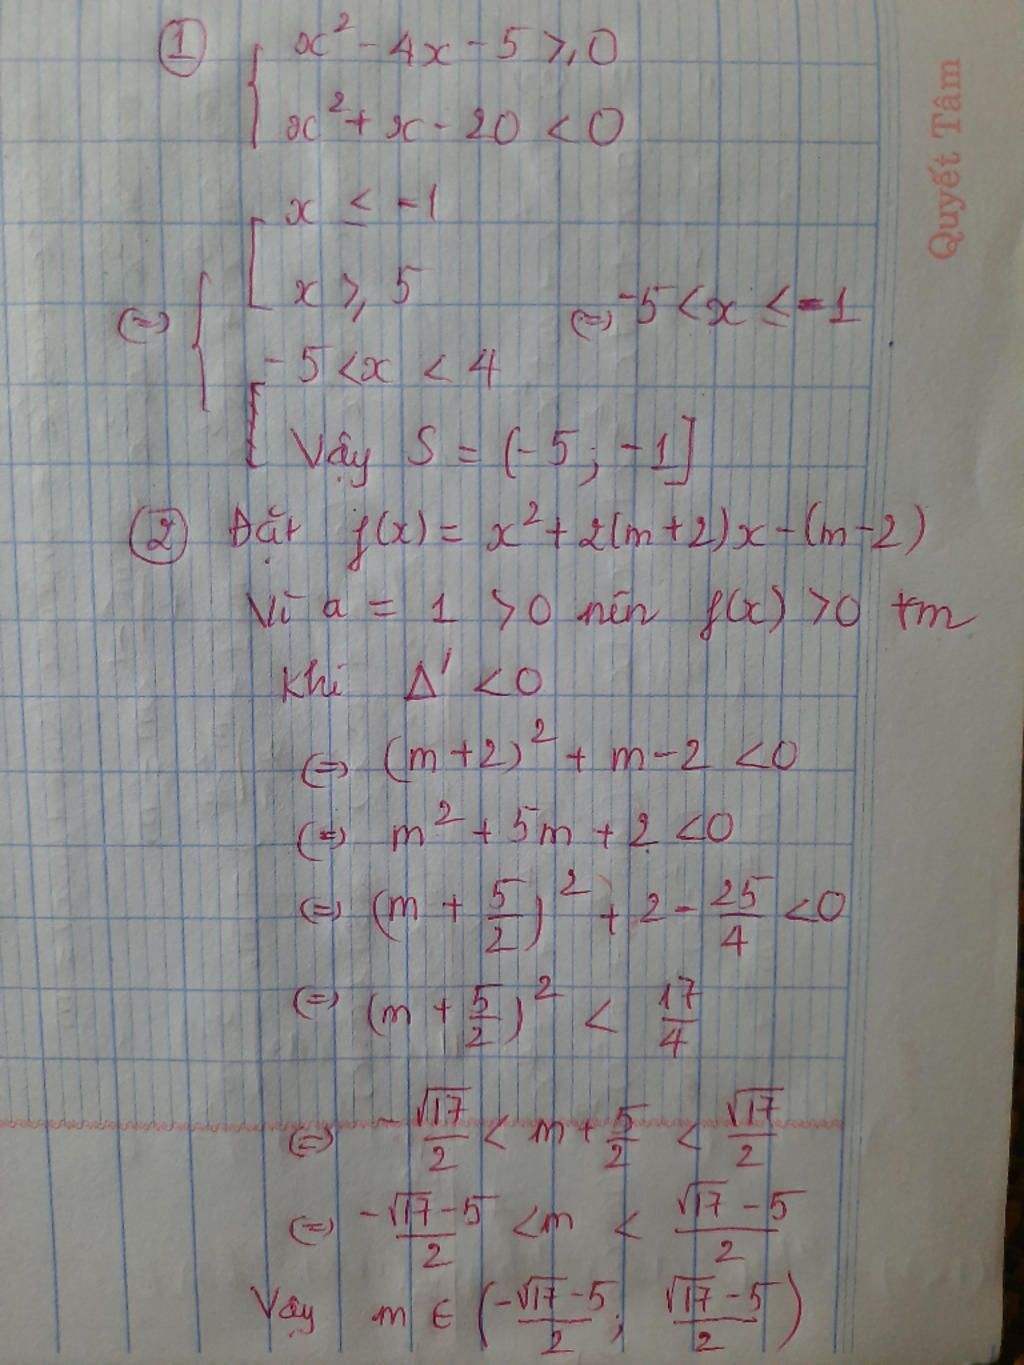 ① x² - 4x - 5 ≥ 0
x² + x - 20 < 0
x ≤ -1
x ≥ 5
⇔ ⇔ -5 < x ≤ -1
-5 < x < 4
Vậy S = (-5; -1]
② Đặt f(x) = x² + 2(m+2)x - (m-2)
Vì a = 1 > 0 nên f(x) > 0 tm
Khi Δ' < 0
⇔ (m+2)² + m - 2 < 0
⇔ m² + 5m + 2 < 0
⇔ (m + 5/2)² + 2 - 25/4 < 0
⇔ (m + 5/2)² < 17/4
⇔ -√17/2 < m + 5/2 < √17/2
⇔ (-√17 - 5)/2 < m < (√17 - 5)/2
Vậy m ∈ ((-√17 - 5)/2; (√17 - 5)/2)
Quyết Tâm